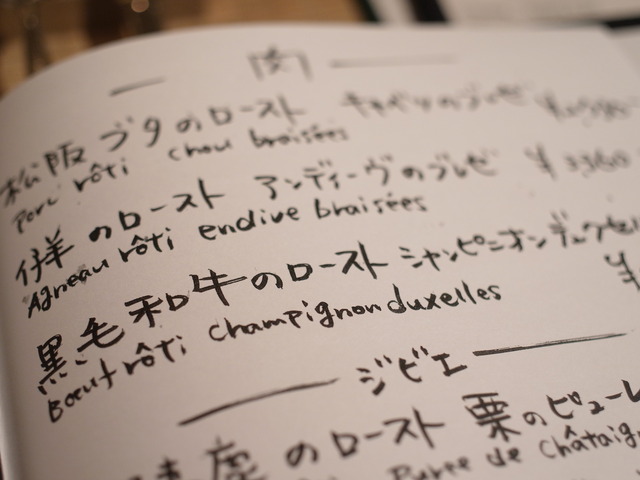 肉
松阪ブタのロースト キャベツのブレゼ
Porc rôti chou braisées
仔羊のロースト アンディーヴのブレゼ ¥3360
Agneau rôti endive braisées
黒毛和牛のロースト シャンピニオンデュクセル
Bœuf rôti champignon duxelles ¥
ジビエ
のロースト 栗のピュー
Puree de châtaign